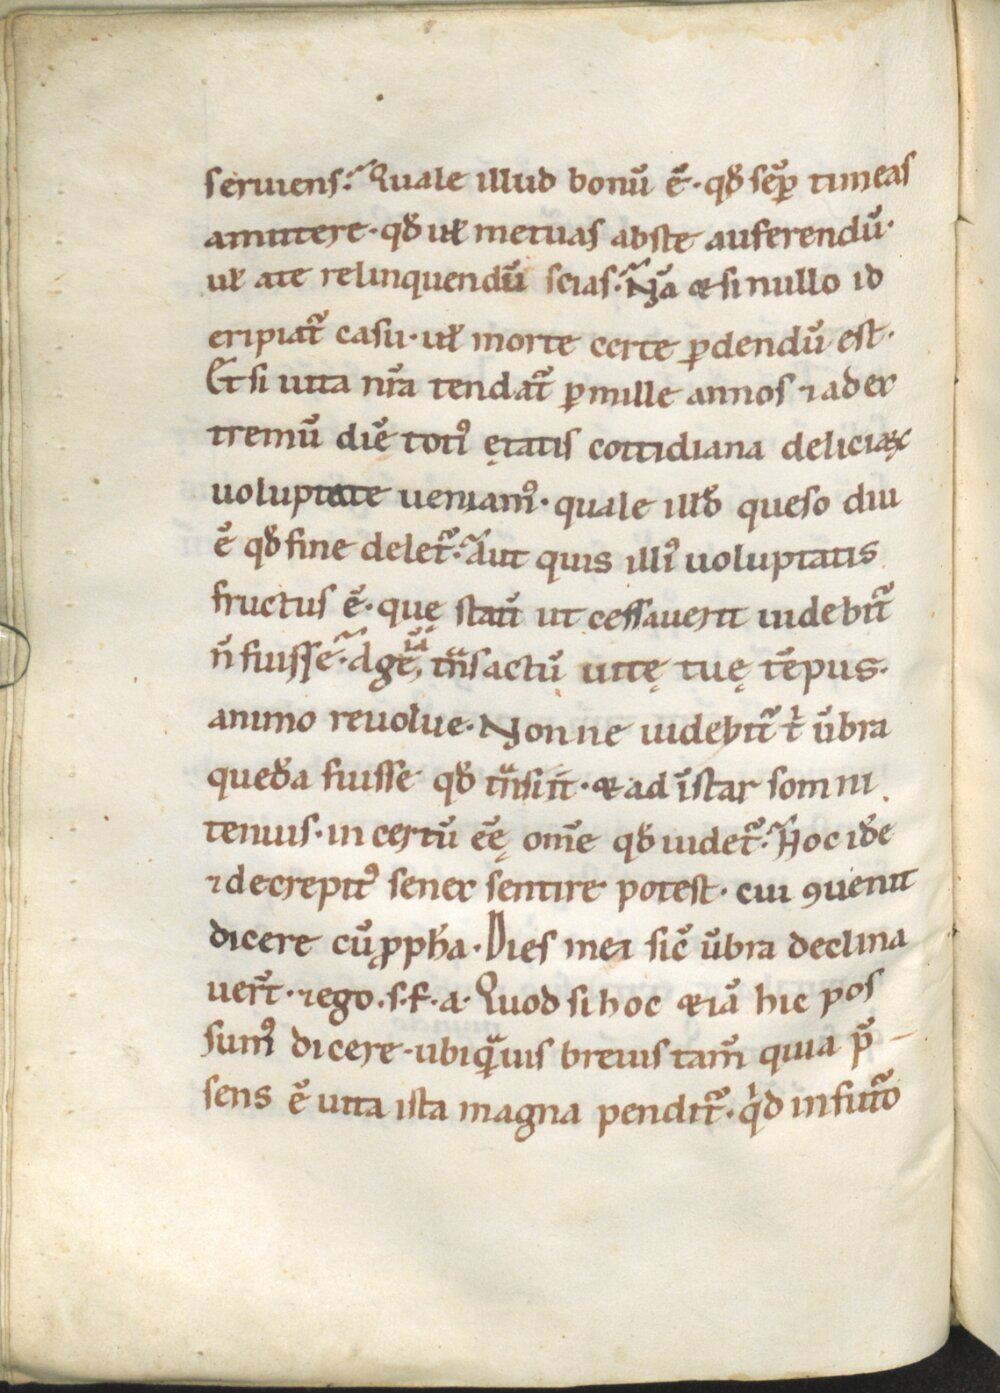 seruiens? Quale illud bonū ē· qđ sēꝑ timeas
amittere· qđ ut̄ metuas abste auferendū·
ut̄ ate relinquendū scias· Nā & si nullo id
eripiat᷑ casu· ut̄ morte certe ꝑdendū est·
Et si uita nr̄a tendat᷑ ꝑ mille annos ⁊ ad ex
tremū diē totiꝰ ętatis cottidiana deliciaꝝ
uoluptate ueniamꝰ· quale illđ queso diu
ē qđ fine delet᷑· Aut quis illiꝰ uoluptatis
fructus ē· quę statī ut cessauerit uidebit᷑
n̄ fuisse· Age, iā tn̄sactū uitę tuę tēpus·
animo reuolue· Nonne uidebit᷑ t̄ ūbra
quedā fuisse qđ tn̄siit· & ad īstar somnii
tenuis· incertū eē ome̅ qđ uidet᷑· Hoc idē
⁊ decrepitꝰ senex sentire potest· cui ꝯuenit
dicere cū ꝓpħa· Dies mei sic̄ ūbra declina
uer̄t· ⁊ ego ·s·f·a· Quod si hoc &iā hic pos
sumꝰ dicere· ubi qͣuis breuis tam̄ quia p̄
sens ē uita ista magna pendit᷑· qͥd in futuro